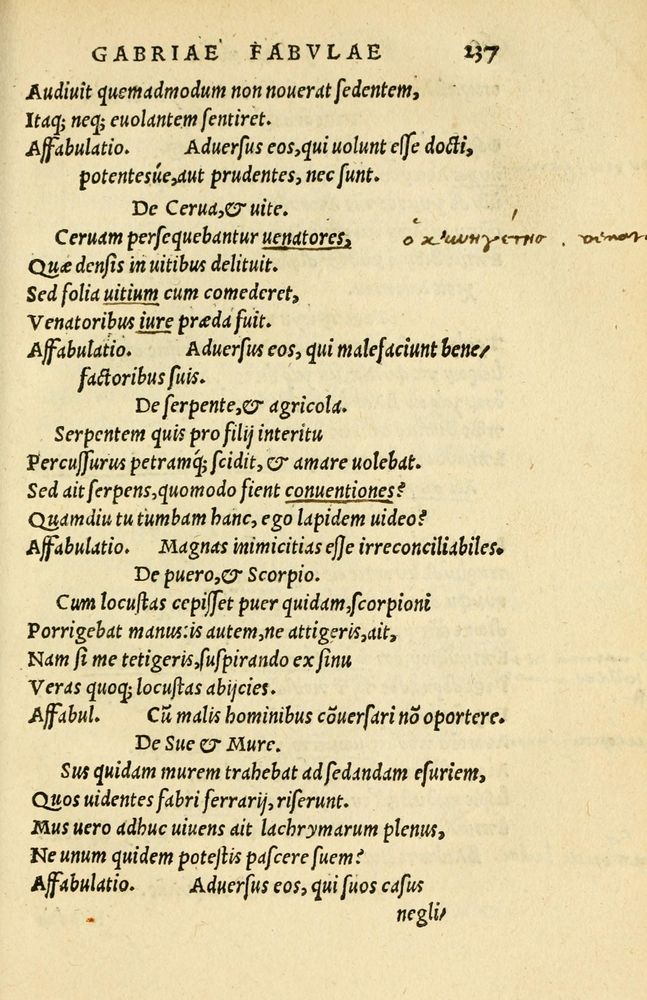 GABRIAE FABVLAE 237
Audiuit quemadmodum non nouerat ſedentem,
Itaq; neq; euolantem ſentiret.
Affabulatio. Aduerſus eos, qui uolunt eſſe docti,
potentesúe, aut prudentes, nec ſunt.
De Cerua, & uite.
Ceruam perſequebantur uenatores,
Quæ denſis in uitibus delituit.
Sed folia uitium cum comederet,
Venatoribus iure præda fuit.
Affabulatio. Aduerſus eos, qui malefaciunt bene/
factoribus ſuis.
De ſerpente, & agricola.
Serpentem quis pro filij interitu
Percuſſurus petramq́; ſcidit, & amare uolebat.
Sed ait ſerpens, quomodo fient conuentiones?
Quamdiu tu tumbam hanc, ego lapidem uideo?
Affabulatio. Magnas inimicitias eſſe irreconciliabiles.
De puero, & Scorpio.
Cum locuſtas cepiſſet puer quidam, ſcorpioni
Porrigebat manus: is autem, ne attigeris, ait,
Nam ſi me tetigeris, ſuſpirando ex ſinu
Veras quoq; locuſtas abijcies.
Affabul. Cū malis hominibus cōuerſari nō oportere.
De Sue & Mure.
Sus quidam murem trahebat ad ſedandam eſuriem,
Quos uidentes fabri ferrarij, riſerunt.
Mus uero adhuc uiuens ait lachrymarum plenus,
Ne unum quidem poteſtis paſcere ſuem?
Affabulatio. Aduerſus eos, qui ſuos caſus
negli/